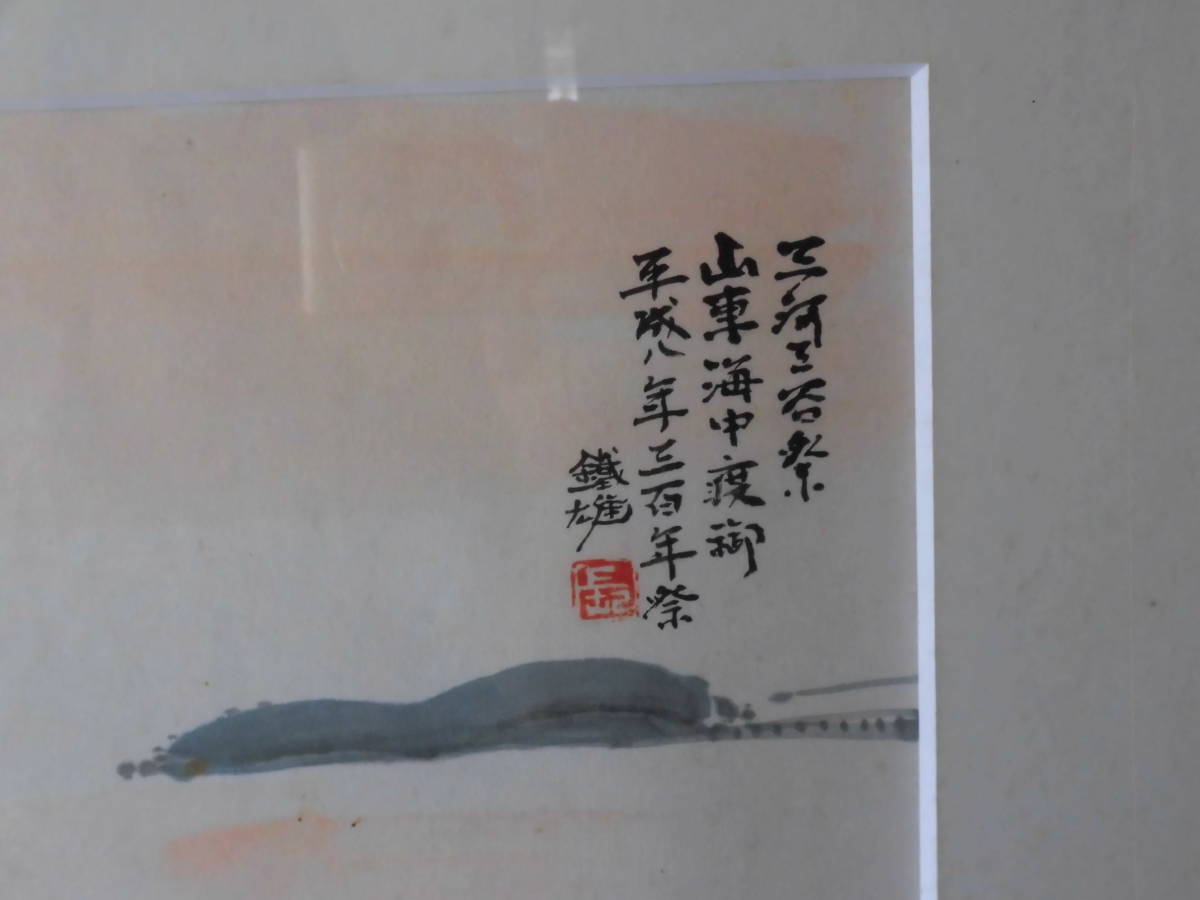 三河三谷祭
山車海中渡御
平成八年三百年祭
鐵雄